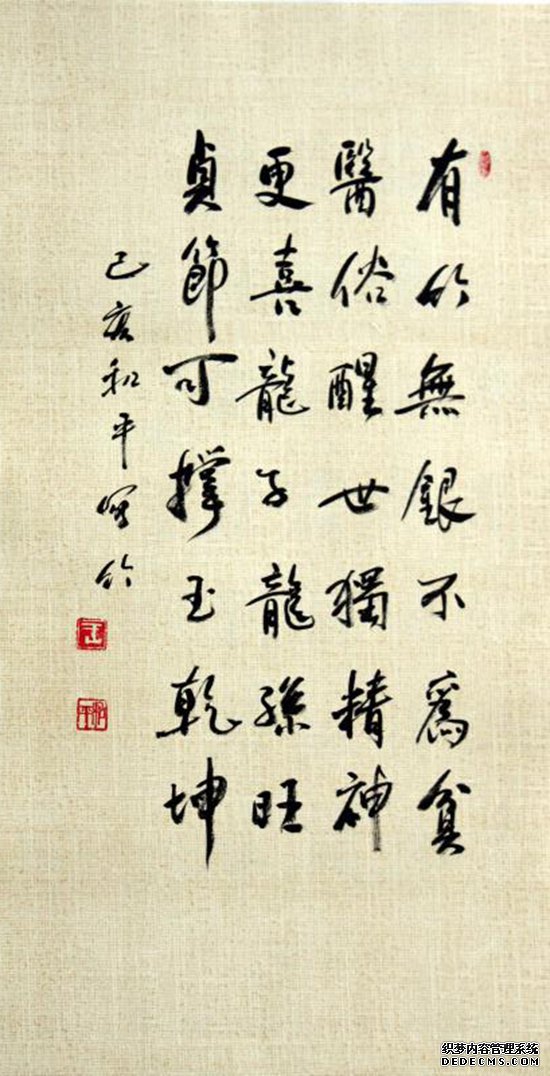 有竹無銀不為貧
醫俗醒世獨精神
更喜龍子龍孫旺
貞節可撐玉乾坤
己亥和平寫竹
织梦内容管理系统
DEDECMS.COM